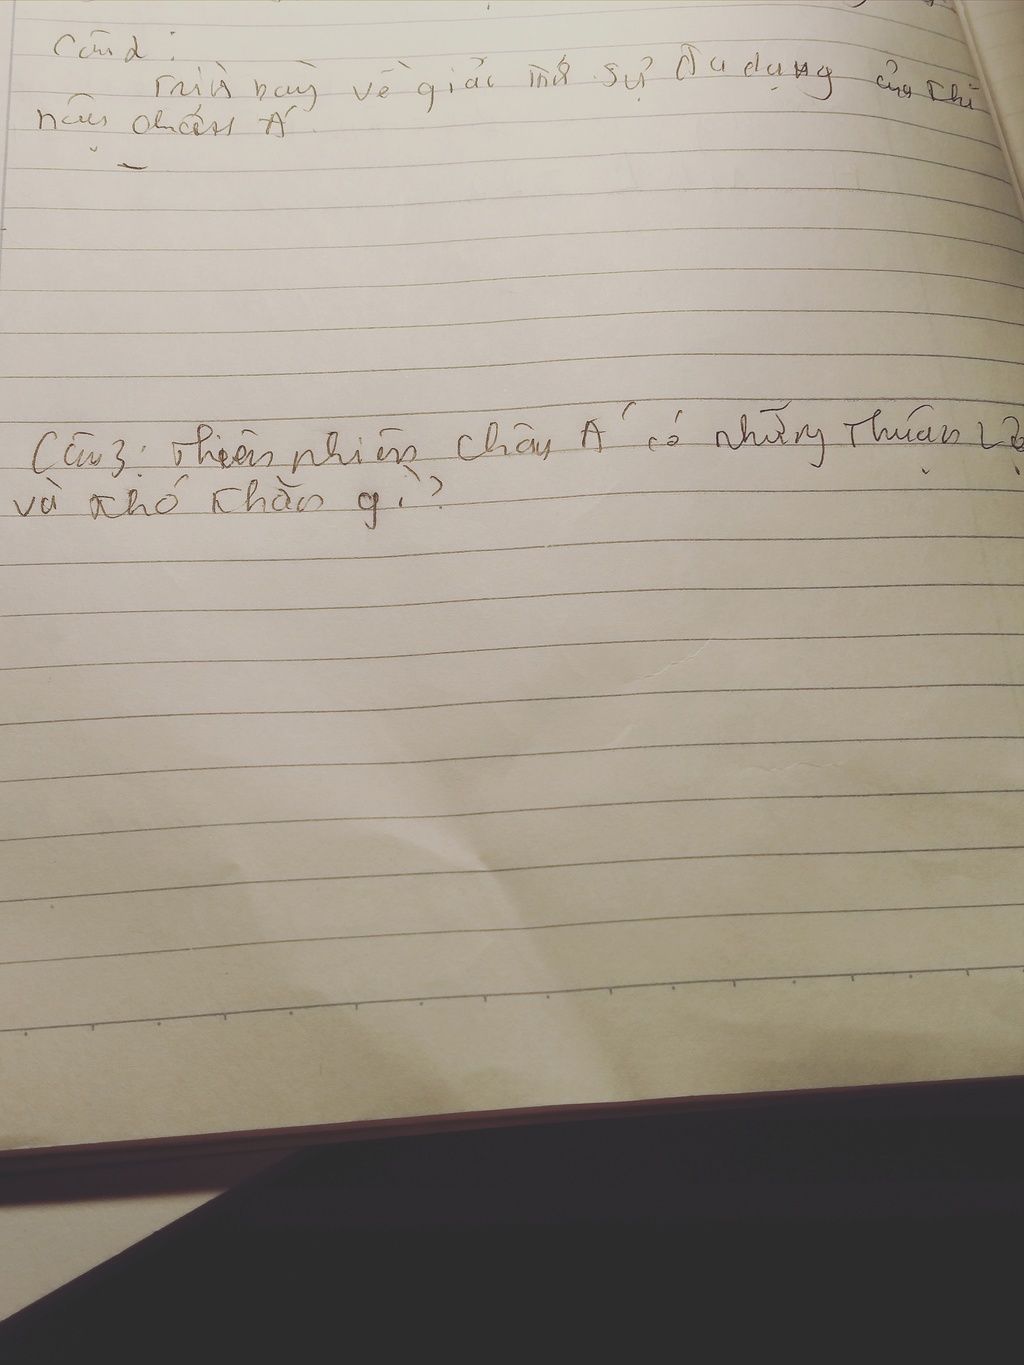 Câu 2:
Trình bày về giải thích sự đa dạng của khí
hậu châu Á
Câu 3: Thiên nhiên Châu Á có những thuận lợi
và khó khăn gì?